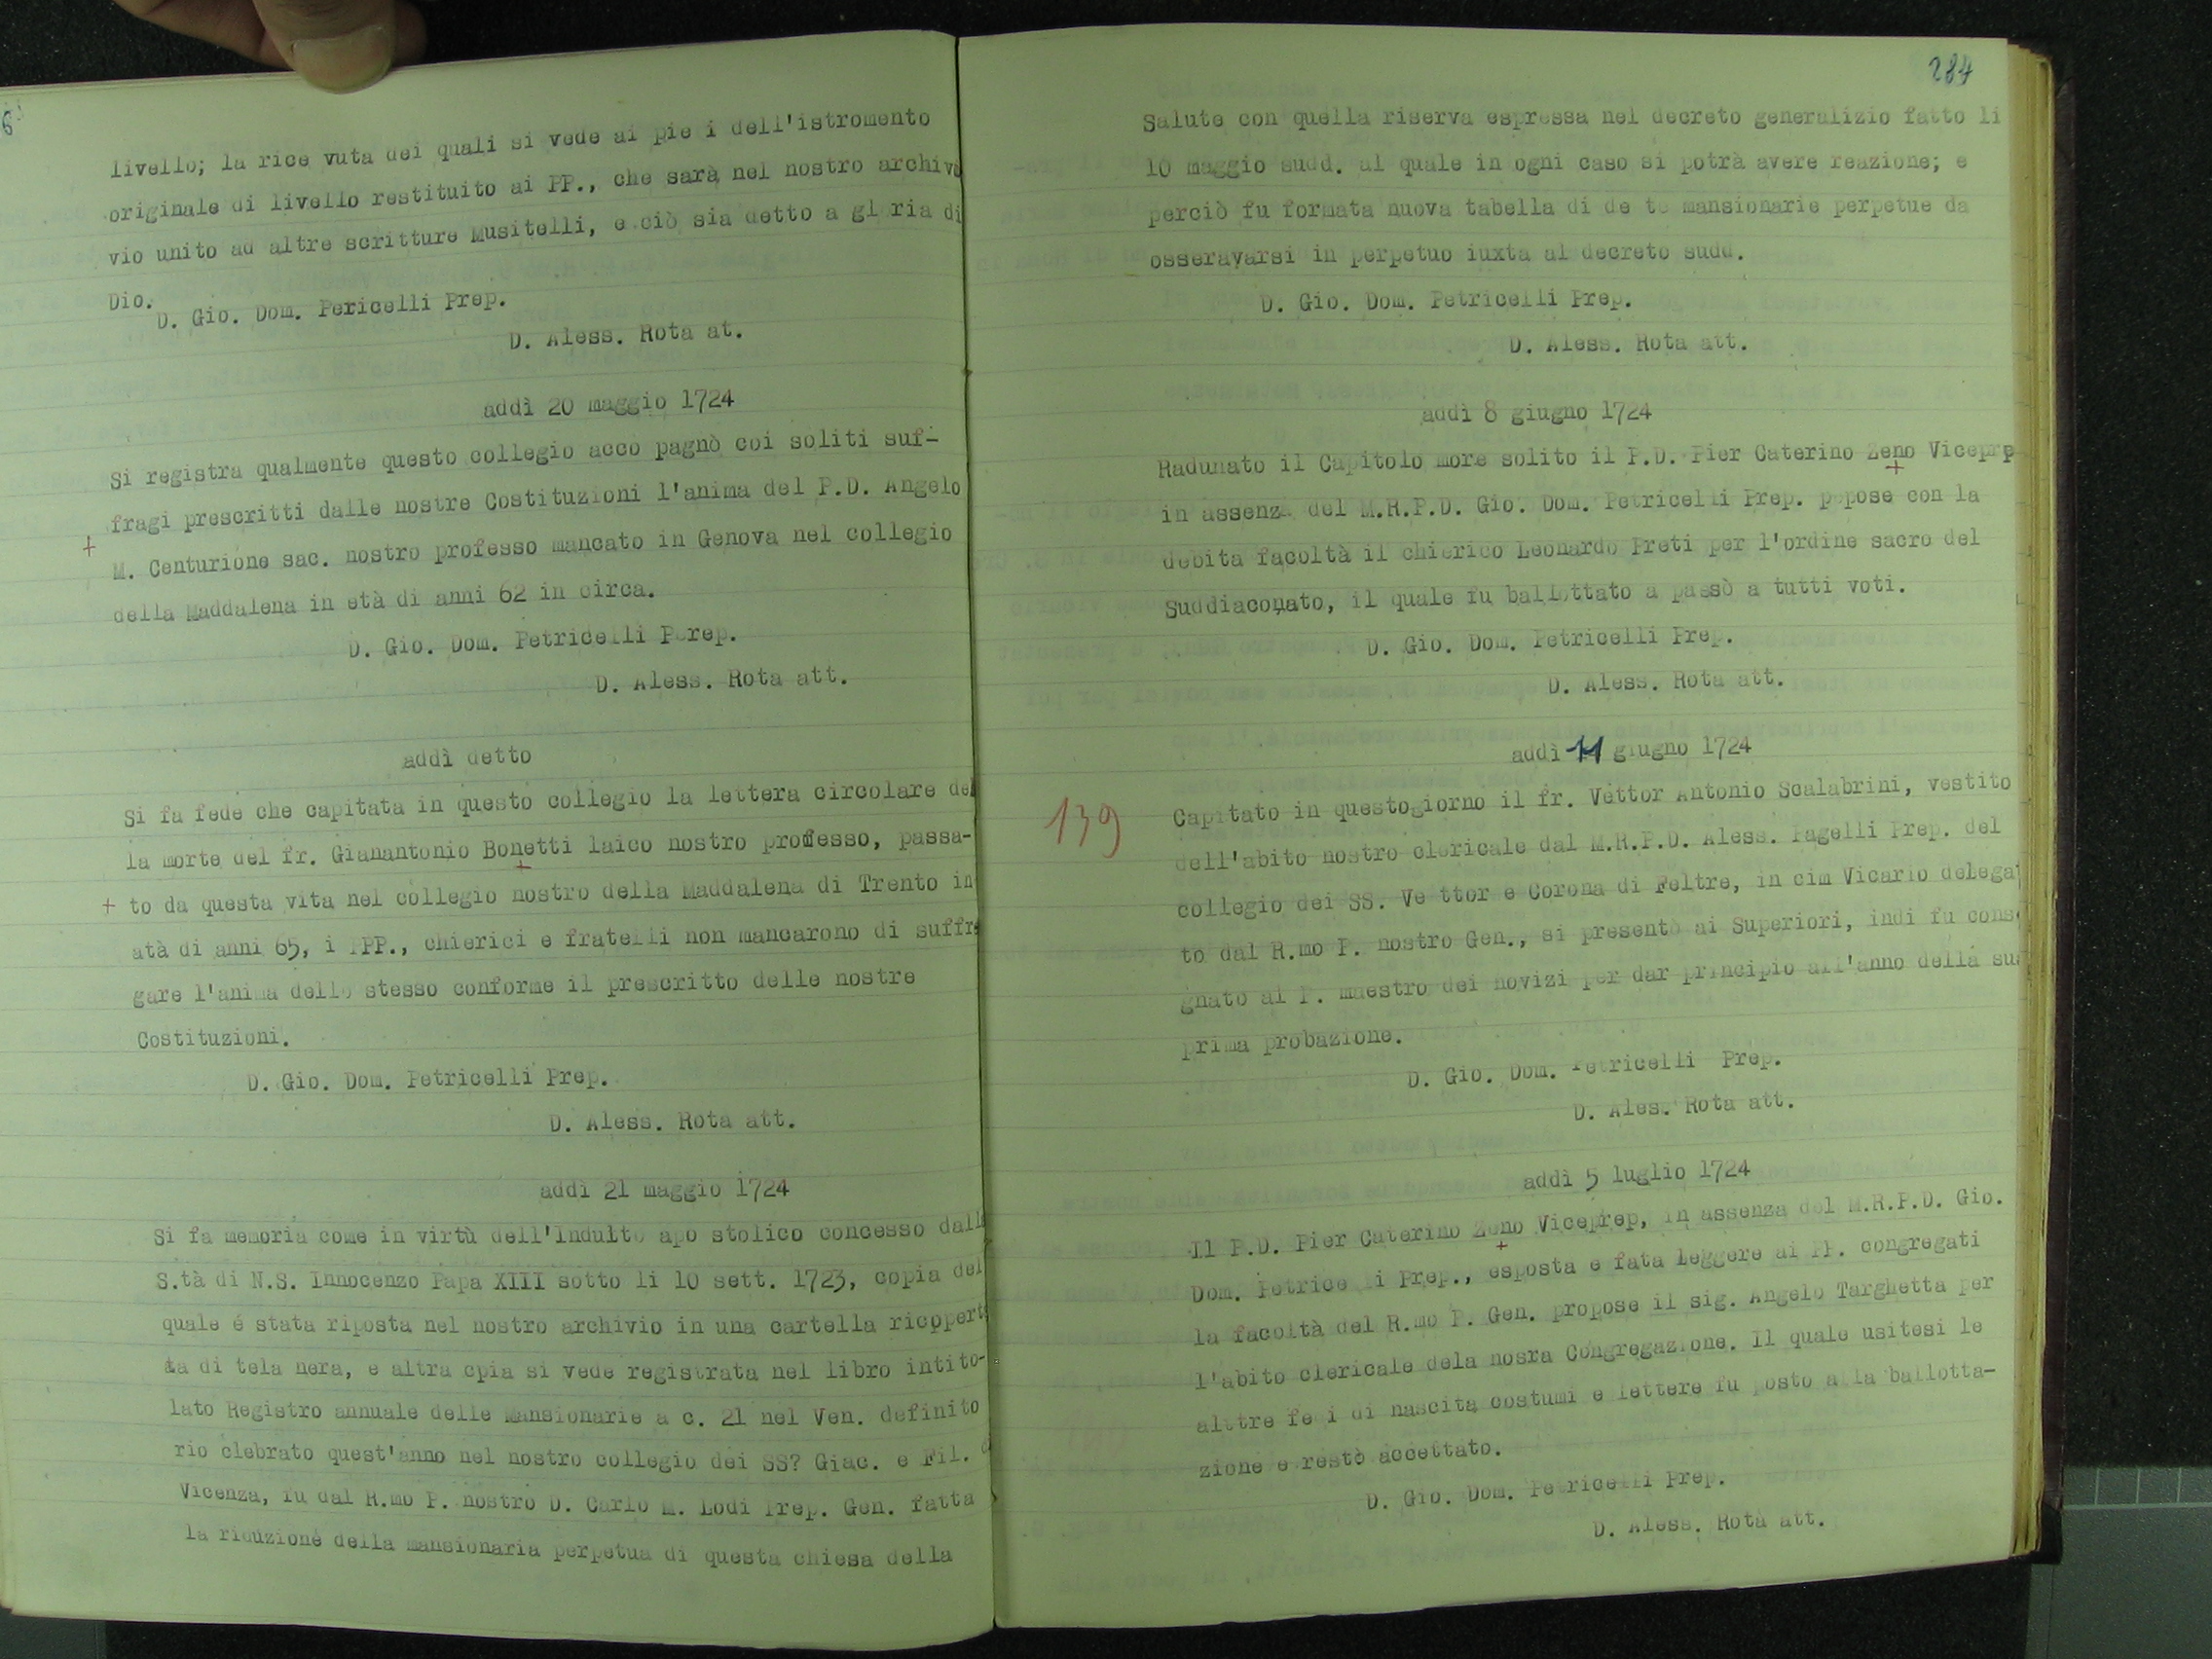 livello; la rice vuta dei quali si vede ai pie i dell'istromento
originale di livello restituito ai PP., che sarà nel nostro archivo
vio unito ad altre scritture Musitelli, e ciò sia detto a gl ria di
Dio.
D. Gio. Dom. Pericelli Prep.
D. Aless. Rota at.
addì 20 maggio 1724
Si registra qualmente questo collegio acco pagnò coi soliti suf-
fragi prescritti dalle nostre Costituzioni l'anima del P.D. Angelo
+ M. Centurione sac. nostro professo mancato in Genova nel collegio
della Maddalena in età di anni 62 in circa.
D. Gio. Dom. Petricelli P rep.
D. Aless. Rota att.
addì detto
Si fa fede che capitata in questo collegio la lettera circolare del
la morte del fr. Gianantonio Bonetti laico nostro professo, passa-
+ to da questa vita nel collegio nostro della Maddalena di Trento in
atà di anni 65, i PPP., chierici e fratelli non mancarono di suffra
gare l'anima dello stesso conforme il prescritto delle nostre
Costituzioni.
D. Gio. Dom. Petricelli Prep.
D. Aless. Rota att.
addì 21 maggio 1724
Si fa memoria come in virtù dell'Indulto apo stolico concesso dalla
S.tà di N.S. Innocenzo Papa XIII sotto li 10 sett. 1723, copia del
quale é stata riposta nel nostro archivio in una cartella ricoperta
ta di tela nera, e altra cpia si vede registrata nel libro intito-
lato Registro annuale delle Mansionarie a c. 21 nel Ven. definito
rio clebrato quest'anno nel nostro collegio dei SS? Giac. e Fil. di
Vicenza, fu dal R.mo P. nostro D. Carlo M. Lodi Prep. Gen. fatta
la riduzione della mansionaria perpetua di questa chiesa della
284
Salute con quella riserva espressa nel decreto generalizio fatto li
10 maggio sudd. al quale in ogni caso si potrà avere reazione; e
perciò fu formata nuova tabella di de te mansionarie perpetue da
osseravarsi in perpetuo iuxta al decreto sudd.
D. Gio. Dom. Petricelli Prep.
D. Aless. Rota att.
addì 8 giugno 1724
Radunato il Capitolo more solito il P.D. Pier Caterino Zeno Viceprp
+
in assenza del M.R.P.D. Gio. Dom. Petricelli Prep. ppose con la
debita facoltà il chierico Leonardo Preti per l'ordine sacro del
Suddiaconato, il quale fu ballottato a passò a tutti voti.
D. Gio. Dom. Petricelli Prep.
D. Aless. Rota att.
addì 11 giugno 1724
139
Capitato in questogiorno il fr. Vettor Antonio Scalabrini, vestito
dell'abito nostro clericale dal M.R.P.D. Aless. Pagelli Prep. del
collegio dei SS. Ve ttor e Corona di Feltre, in cim Vicario delega
to dal R.mo P. nostro Gen., si presentò ai Superiori, indi fu conse
gnato al P. maestro dei novizi per dar principio all'anno della sua
prima probazione.
D. Gio. Dom. Petricelli Prep.
D. Ales. Rota att.
addì 5 luglio 1724
Il P.D. Pier Caterino Zeno Viceprep, in assenza del M.R.P.D. Gio.
+
Dom. Petrice li Prep., esposta e fata leggere ai PP. congregati
la facoltà del R.mo P. Gen. propose il sig. Angelo Targhetta per
l'abito clericale dela nosra Congregazione. Il quale usitesi le
alttre fe i di nascita costumi e lettere fu posto alla ballotta-
zione e restò accettato.
D. Gio. Dom. Petricelli Prep.
D. Aless. Rota att.